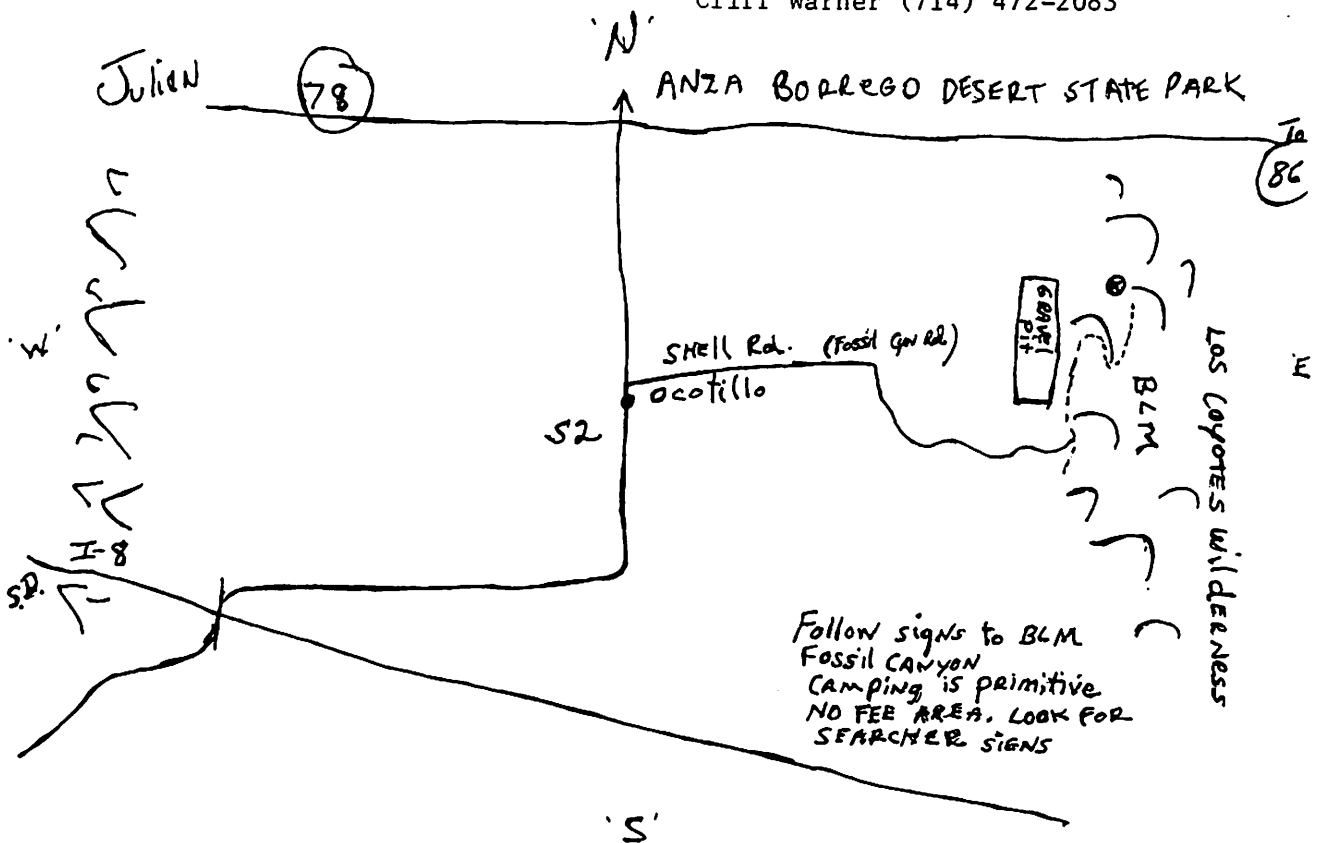 Cliff Warner (714) 472-2083
'N'
Julian
78
ANZA BORREGO DESERT STATE PARK
To
86
'W'
GRAVEL
Pit
SHELL Rd. (Fossil Cyn Rd.)
Ocotillo
S2
BLM
LOS COYOTES WILDERNESS
E
I-8
S.D.
Follow signs to BLM
FOSSIL CANYON
CAMPING is primitive
NO FEE AREA. LOOK FOR
SEARCHER SIGNS
'S'